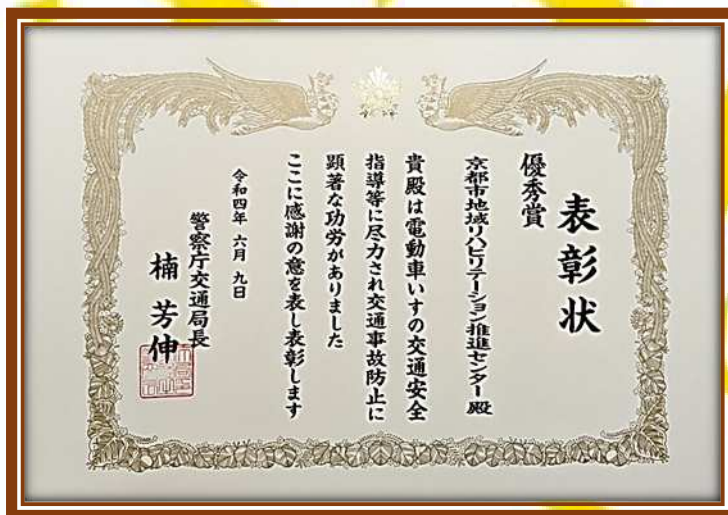 表彰状
優秀賞
京都市地域リハビリテーション推進センター殿
貴殿は電動車いすの交通安全
指導等に尽力され交通事故防止に
顕著な功労がありました
ここに感謝の意を表し表彰します
令和四年 六月 九日
警察庁交通局長
楠 芳伸